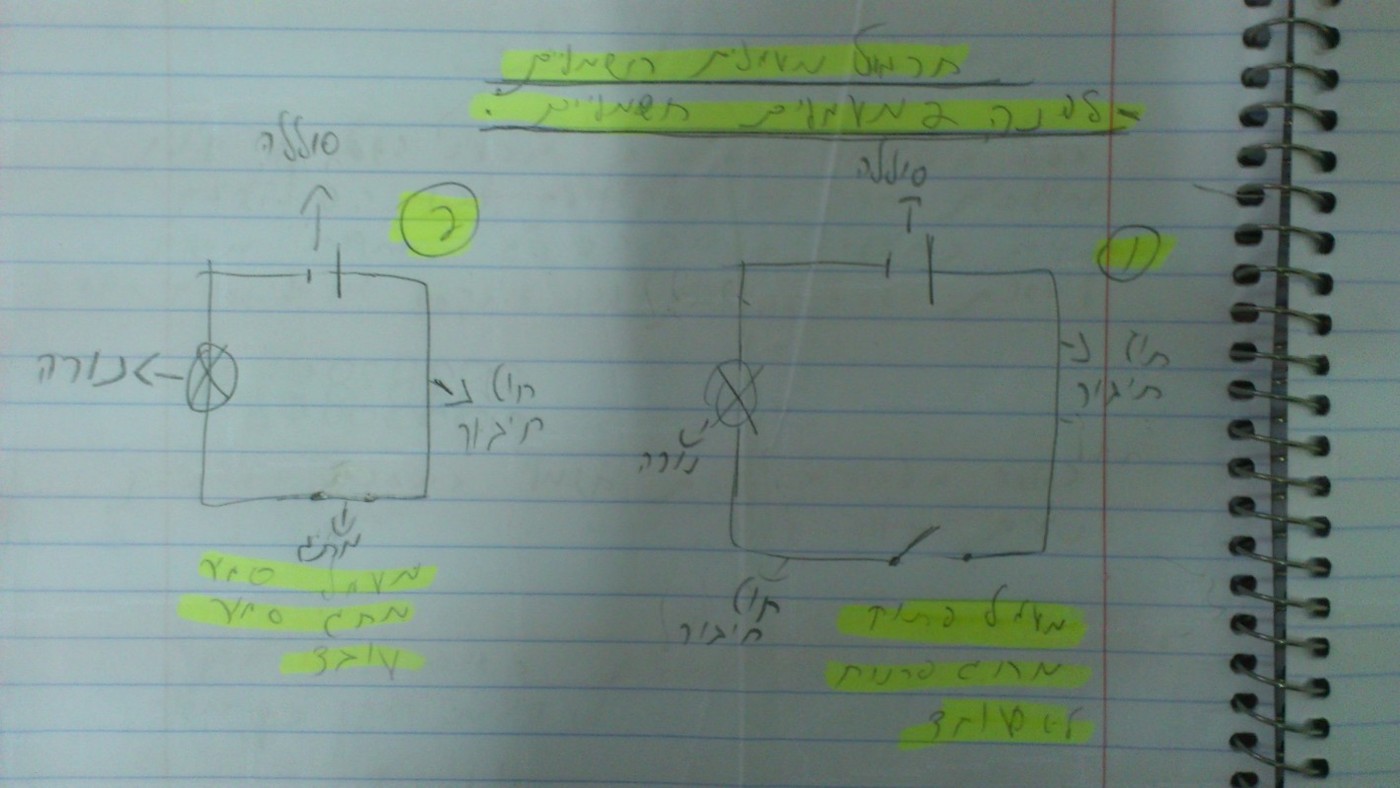 מעגלים חשמליים
במעגלים חשמליים.
①
סוללה
חוט
חיבור
נורה
חוט
חיבור
מעגל פתוח
מתג פתוח
לא עובד
②
סוללה
נורה
חוט
חיבור
מתג
מעגל סגור
מתג סגור
עובד